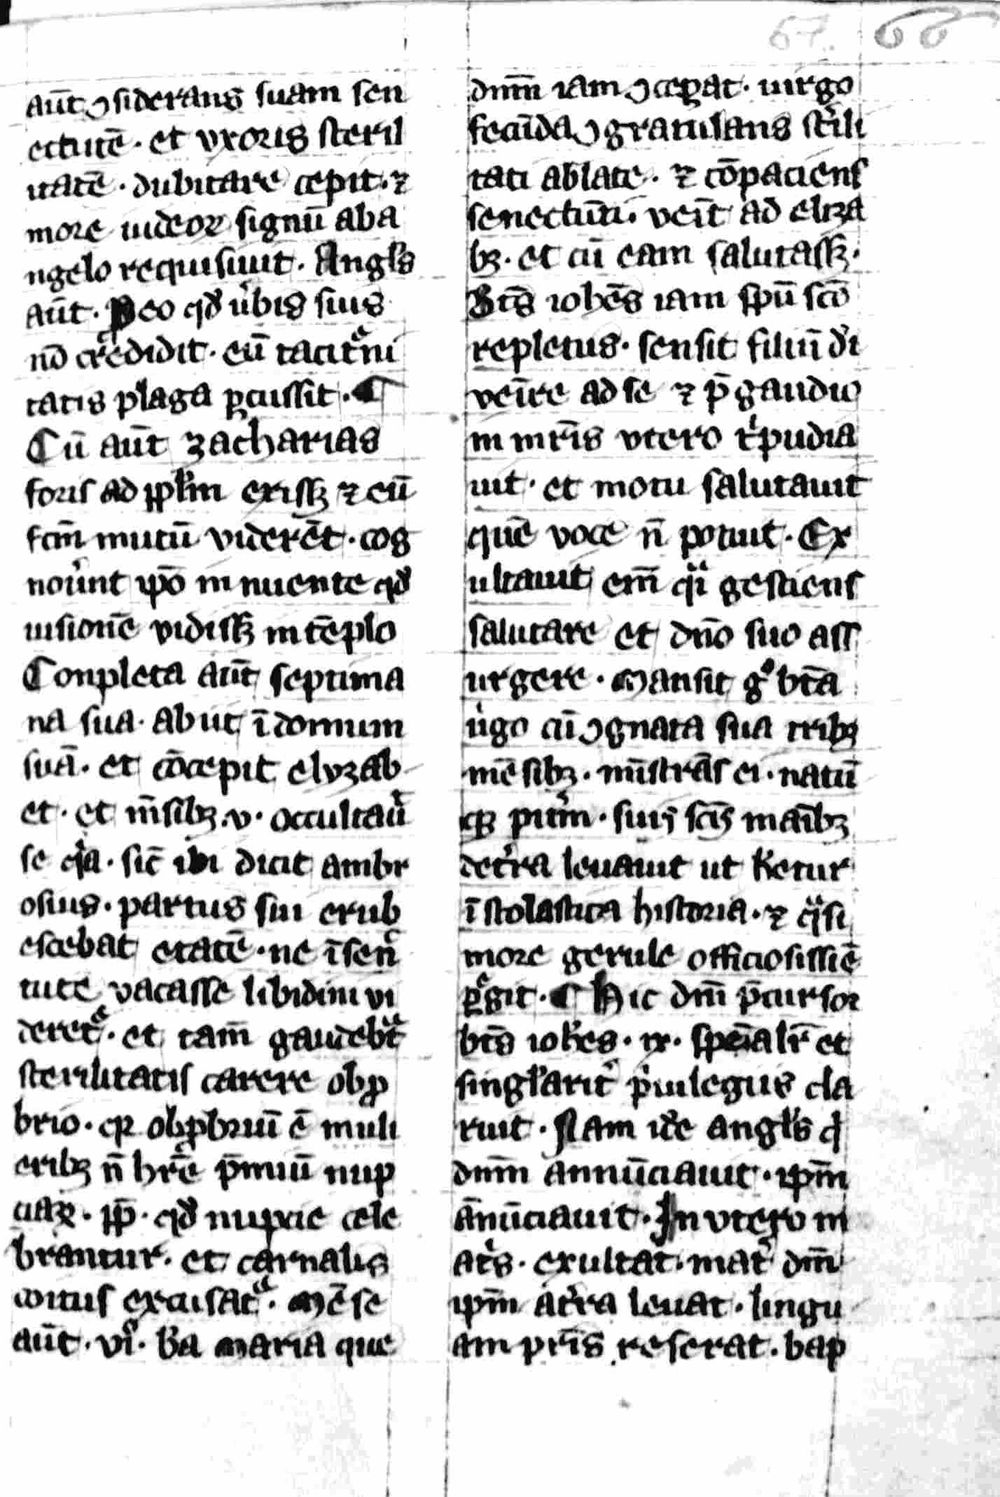 67. 66
aūt ꝯsiderans suam sen
ectutē · et vxoris steril
itatē · dubitare cepit · ⁊
more iudeoꝝ signū aba
ngelo requisiuit · Angl's
aūt · Deo qd' u'bis suis
nō crededit · eū taciturni
tatis plaga ꝑcussit · ¶
Cū aūt zacharias
foris ad ppl'm exissꝫ ⁊ eū
fcm̄ mutū viderēt · cog
nou'unt ip̄o innuente qd'
uisionē vidissꝫ in tēplo
Conpleta aūt septima
na sua · abiit ī domum
suā · et cōcepit elyzab
et · et m̄sibꝫ · v · occultau'
se q'a · sic̄ ibi dicit ambr
osius · partus sui erub
escebat etatē · ne ī sen
tute vacasse libidini vi
deret' · et tam̄ gaudebat
sterilitatis carere obp
brio · qꝛ obꝓbriū ē muli
eribꝫ n̄ hr̄e p̄miū nup
ciaꝝ · ꝓp̄ · qd' nupcie cele
brantur · et carnalis
coitus excusat' · Mēse
aūt · vi° · b'a maria que
dnm̄ iam ꝯceꝑat · uirgo
fecūda ꝯgratulans st'ili
tati ablate · ⁊ cōpaciens
senectuti · veīt ad eliza
bꝫ · et cū eam salutassꝫ ·
Bt̄s ioh̄es iam spū scō
repletus · sensit filiū d'i
veīre ad se ⁊ p̄ gaudio
in mr̄is vtero t'pudia
uit · et motu salutauit
quē voce n̄ potuit · Ex
ultauit em̄ q'i gestiens
salutare et dn̄o suo ass
urgere · Mansit g° bt̄a
u'go cū ꝯgnata sua tribꝫ
mēsibꝫ · mīstrās ei · natū
qꝫ puer'm · suis scīs manibꝫ
de t'ra leuauit ut h'etur
ī scolastica historia · ⁊ q'si
more gerule officiosissīe
ꝑegit · ¶ Hic dn̄i p̄cursor
bt̄s ioh'es · ix · spēalr̄ et
singl'arit' p'uilegiis cla
ruit · Nam id'e angl's q'
dnm̄ annūciauit · ip̄m
ānūciauit · In vtero m
at's · exultat · mat' dn̄i
ip̄m at'ra leuat · lingu
am pr̄is reserat · bap